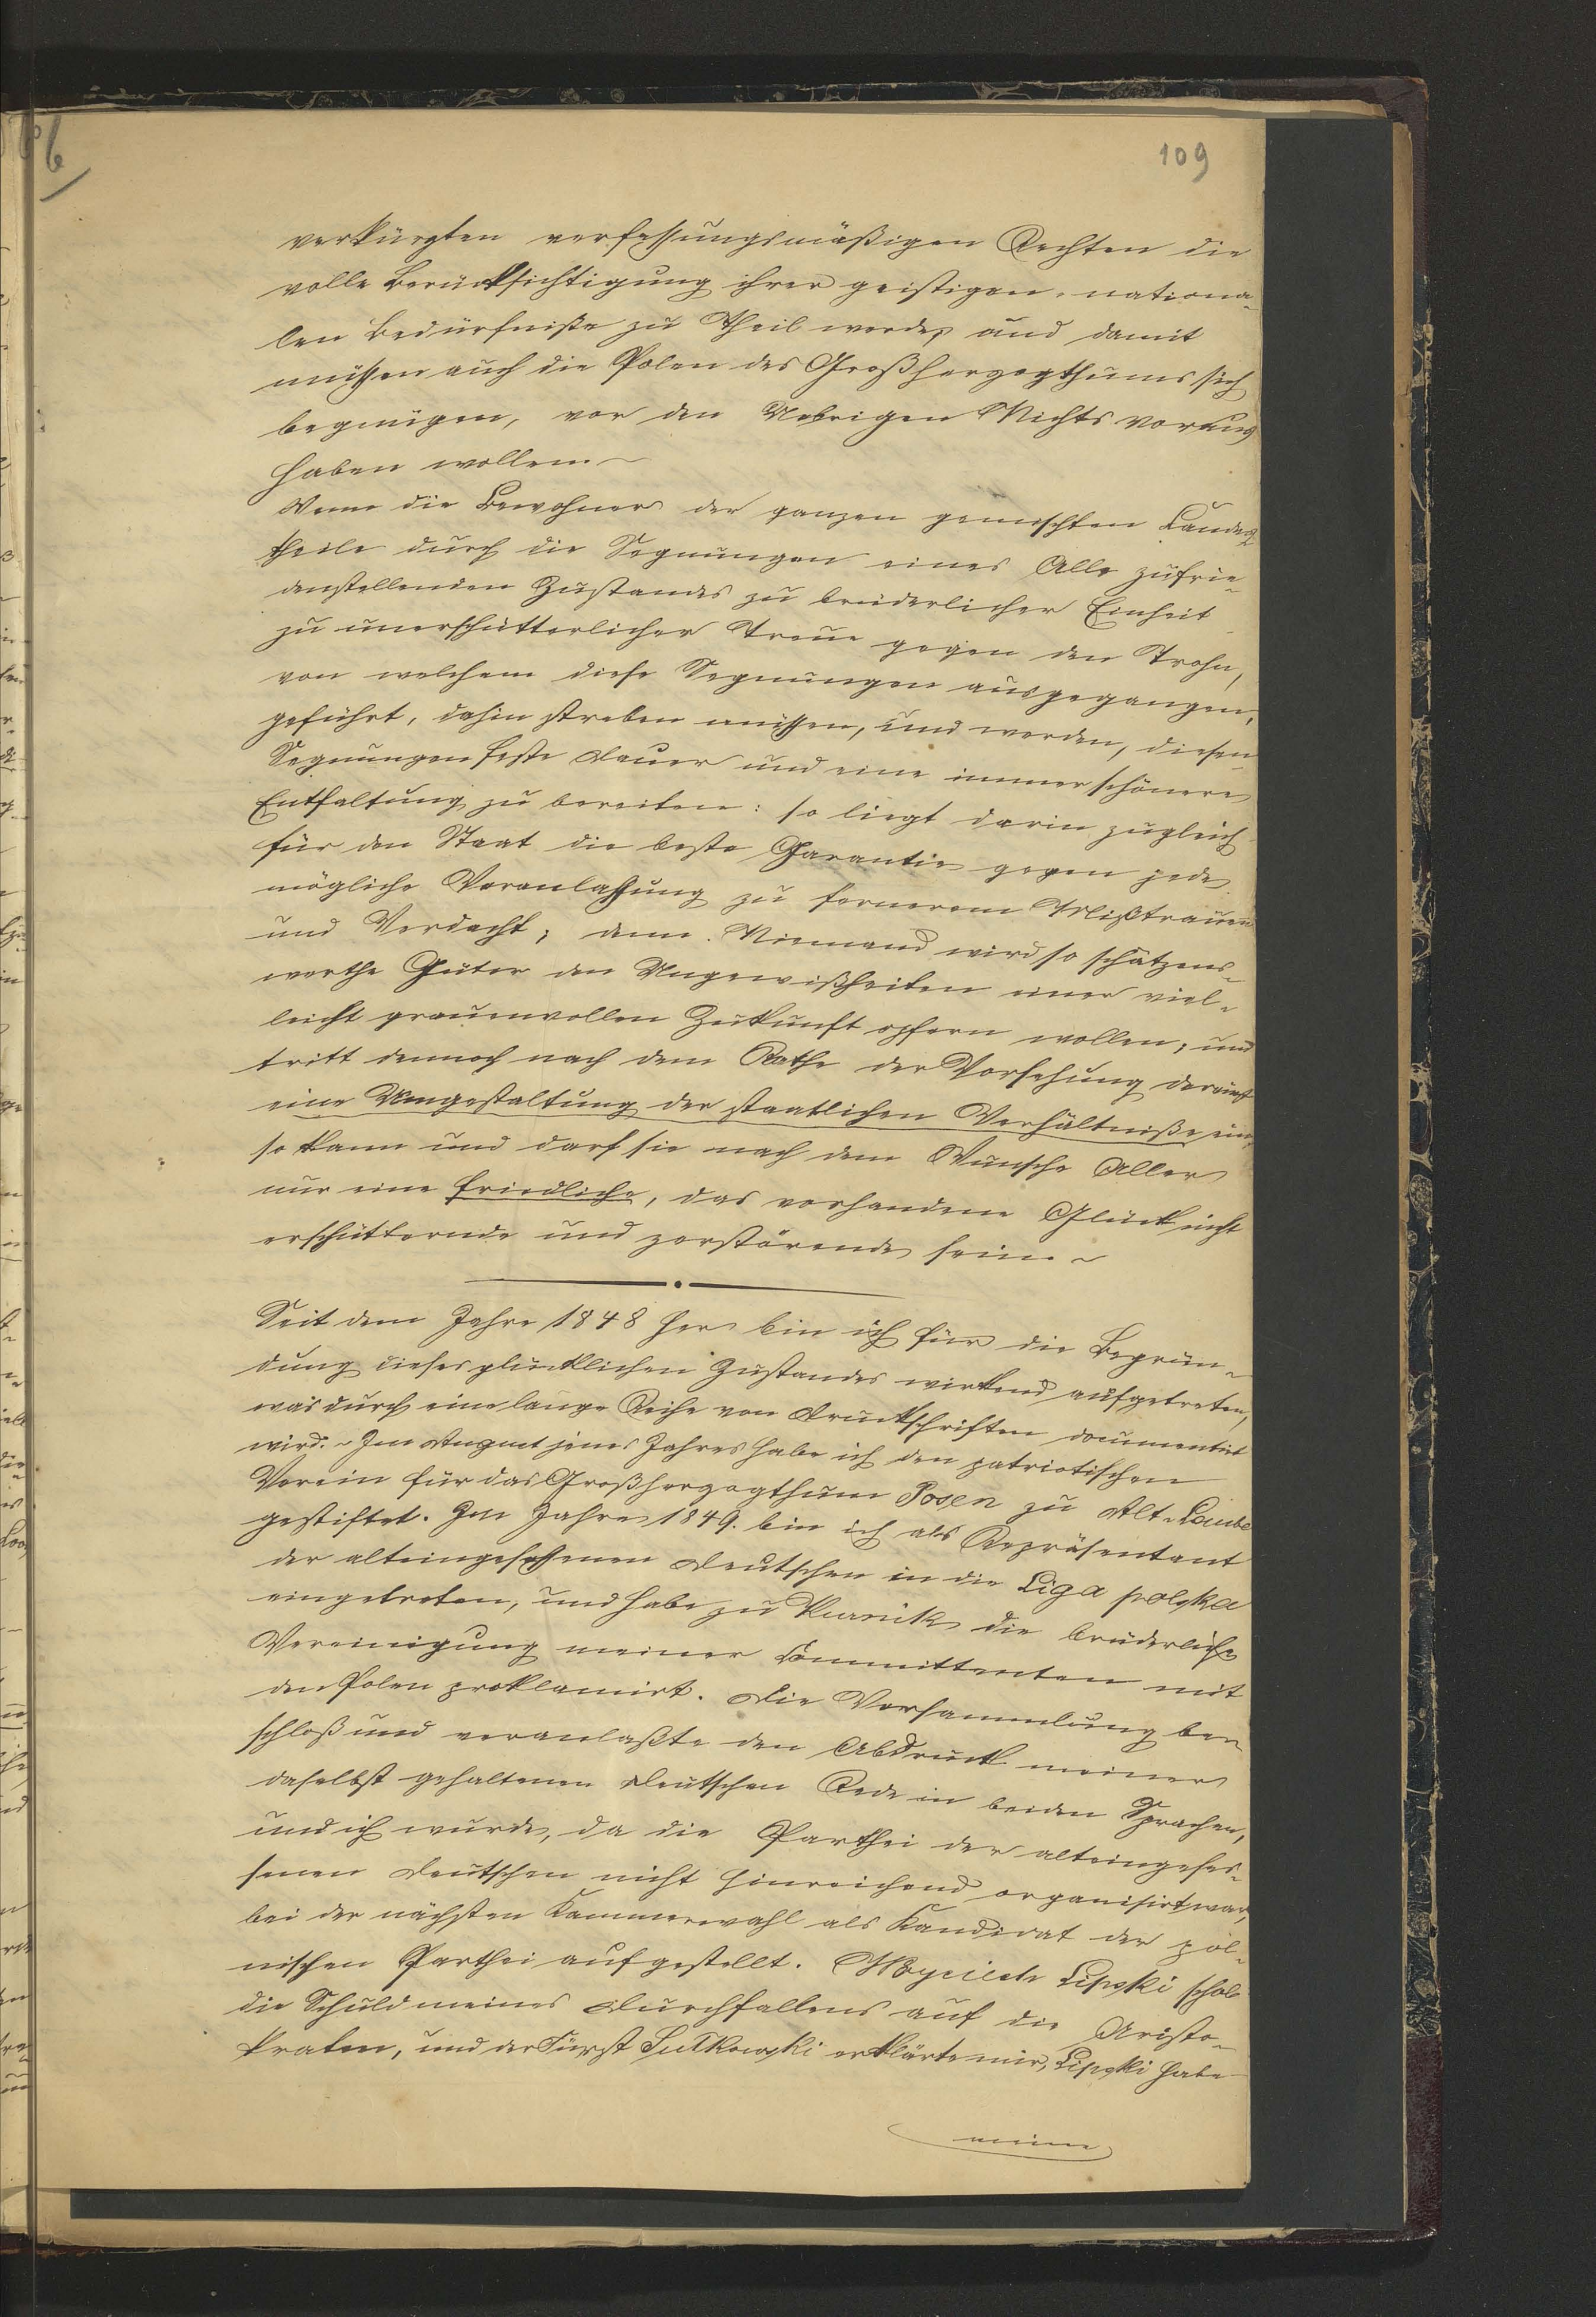 109
verkürzten verfassungsmäßigen Rechten die
volle Berücksichtigung ihrer geistigen, nationa-
len Bedürfniße zu Theil werde, und damit
müssen auch die Polen des Großherzogthums sich
begnügen, vor den Uebrigen Nichts voraus
haben wollen. ~
Wenn die Bewohner der ganzen gemischten Landes-
theile durch die Segnungen eines Alle zufrie-
denstellenden Zustandes zu brüderlicher Einheit
zu unerschütterlicher Treue gegen den Trohn,
von welchem diese Segnungen ausgegangen,
geführt, dahin streben müssen, und werden, diesen
Segnungen feste Dauer und eine immer schönere
Entfaltung zu bereiten: so liegt darin zugleich
für den Staat die beste Garantie gegen jede
mögliche Veranlassung zu fernerem Mißtrauen
und Verdacht; denn Niemand wird so schätzens-
werthe Güter den Ungewißheiten einer viel-
leicht grauenvollen Zukunft opfern wollen; und
tritt dennoch nach dem Rathe der Vorsehung dereinst
eine Umgestaltung der staatlichen Verhältniße ein,
so kann und darf sie nach dem Wunsche Aller
nur eine friedliche, das vorhandene Glück nicht
erschütternde und zerstörende sein. ~
Seit dem Jahre 1848 her bin ich für die Begrün-
dung dieses glücklichen Zustandes wirkend aufgetreten,
was durch eine lange Reihe von Druckschriften documentirt
wird. ~ Im August jenes Jahres habe ich den patriotischen
Verein für das Großherzogthum Posen zu Alt-Laube
gestiftet. Im Jahre 1849. bin ich als Repräsentant
der alteingesessenen Deutschen in die Liga polska
eingetreten, und habe zu Kurnik die brüderliche
Vereinigung meiner Committenten mit
den Polen proklamirt. Die Versammlung be-
schloß und veranlaßte den Abdruck meiner
daselbst gehaltenen Deutschen Rede in beiden Sprachen,
und ich wurde, da die Parthei der alteingeses-
senen Deutschen nicht hinreichend organisirt war,
bei der nächsten Kammerwahl als Kandidat der pol-
nischen Parthei aufgestellt. Woyciech Lipski schob
die Schuld meines Durchfallens auf die Aristo-
kraten, und der Fürst Sułkowski erklärte mir, Lipski habe
meine